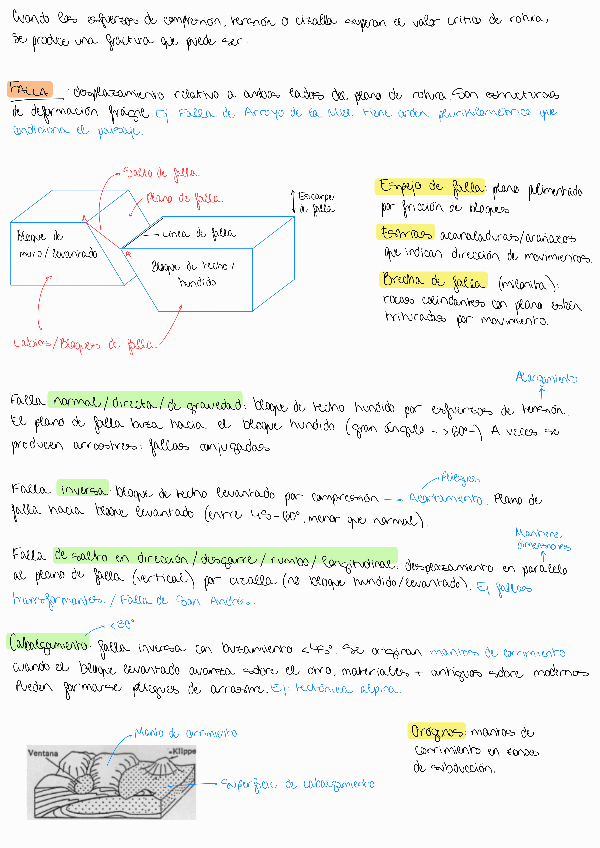 Cuando los esfuerzos de compresión, tensión o cizalla superan el valor crítico de rotura,
se produce una fractura que puede ser:
FALLA: desplazamiento relativo a ambos lados del plano de rotura. Son estructuras
de deformación frágil. Ej Falla de Arroyo de la Miel. Tiene orden plurikilométrico que
condiciona el paisaje.
Salto de falla.
Plano de falla.
Escarpe
de falla
Línea de falla
Bloque de
muro/levantado
Bloque de techo/
hundido
Labios/Bloques de falla.
Espejo de falla: plano pulimentado
por fricción de bloques
Estrías: acanaladuras/arañazos
que indican dirección de movimientos.
Brecha de falla (milonita):
rocas colindantes con plano están
trituradas por movimiento.
Alargamiento
Falla normal/directa/de gravedad: bloque de techo hundido por esfuerzos de tensión.
El plano de falla buza hacia el bloque hundido (gran ángulo -> 60º). A veces se
producen arrastres: fallas conjugadas
Pliegues
Falla inversa: bloque de techo levantado por compresión -- acortamiento. Plano de
falla hacia bloque levantado (entre 45-60º, menor que normal).
Mantiene
dimensiones
Falla de salto en dirección/desgarre/rumbo/longitudinal: desplazamiento en paralelo
al plano de falla (vertical) por cizalla (no bloque hundido/levantado). Ej fallas
transformantes / Falla de San Andrés.
<30º
Cabalgamiento: falla inversa con buzamiento <45º. Se originan mantos de corrimiento
cuando el bloque levantado avanza sobre el otro, materiales + antiguos sobre modernos
Pueden formarse pliegues de arrastre. Ej: tectónica alpina.
Manto de corrimiento
Ventana
Klippe
Superficie de cabalgamiento
Orógenos: mantos de
corrimiento en zonas
de subducción.